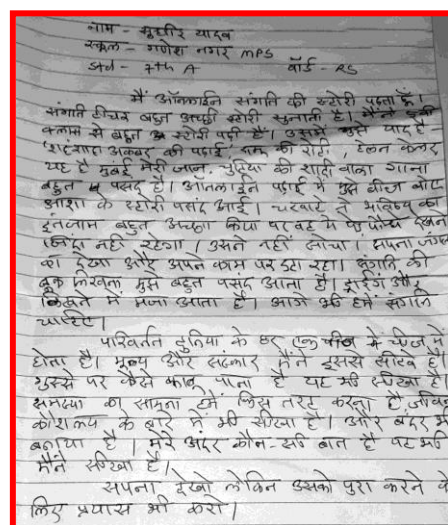 नाम - सुधीर यादव
स्कूल - गणेश नगर MPS
Std - 7th A वॉर्ड - RS
मैं ऑनलाईन संगति की स्टोरी पढ़ता हूँ।
संगति टीचर बहुत अच्छी स्टोरी सुनाती है। मैंने
क्लास में बहुत स्टोरी पढ़ी है। उसमें मुझे याद है-
अकबर की पढ़ाई, की रोटी, हेलन केलर
यह है मुंबई मेरी जान, चुहिया की शादी वाला गाना
बहुत पसंद है। आनलाईन पढ़ाई में मुझे बीज बोए
आशा के स्टोरी पसंद आई। चरवाहे ने भविष्य का
इंतजाम बहुत अच्छा किया पर वह में
जिंदा नहीं रहेगा। उसने नहीं सोचा। सपना
का देखा और अपने काम पर डटा रहा। संगति की
बुक लिखना मुझे बहुत पसंद आता है। ड्राईंग और
लिखने में मजा आता है। आगे भी हमें संगति
चाहिए।
परिवर्तन दुनिया के हर एक चीज में
होता है। मूल्य और सहकार मैंने इससे सीखे है।
गुस्से पर कैसे काबू पाना है यह भी सीखा है।
समस्या का सामना हमें किस तरह करना है, जीवन
कौशल्य के बारे में भी सीखा है। और
बताया है। मेरे अंदर कौन-सी बात है यह भी
मैंने सीखा है।
सपना देखो लेकिन उसको पुरा करने के
लिए प्रयास भी करो।